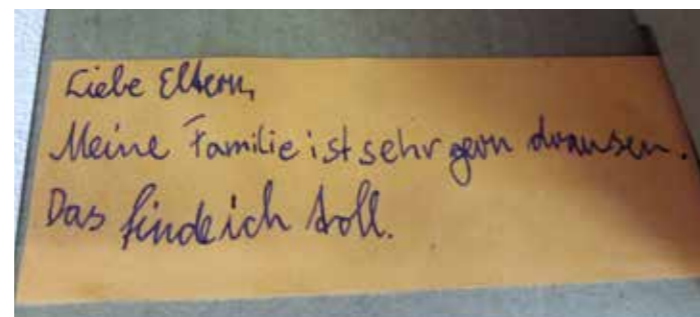 Liebe Eltern,
Meine Familie ist sehr gern drausen.
Das finde ich toll.